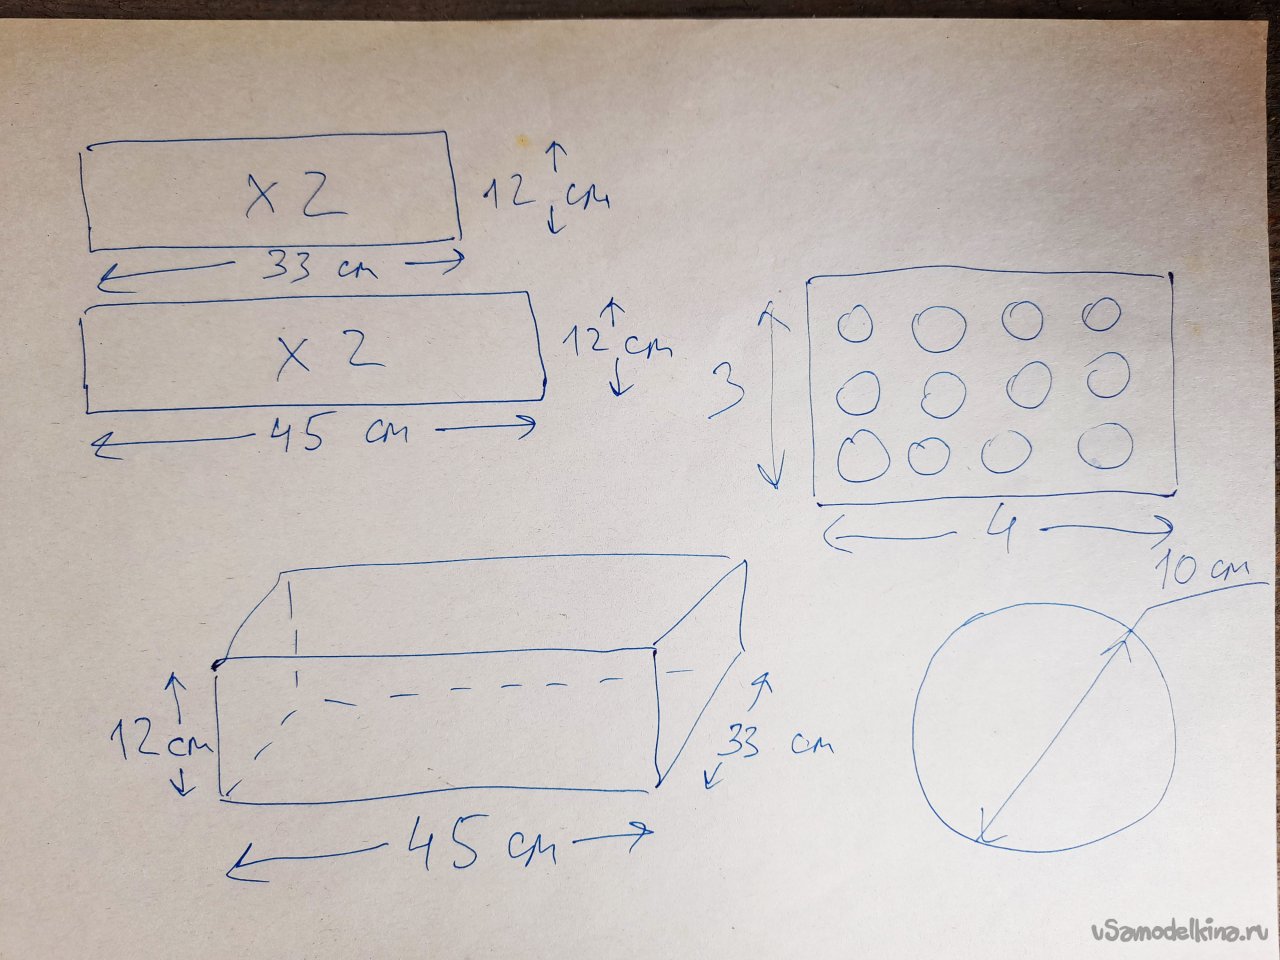 x 2
12 см
33 см
x 2
12 см
45 см
3
4
10 см
12 см
33 см
45 см
uSamodelkina.ru